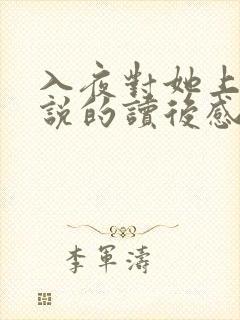 入夜對她上
說的讀後感
李軍濤